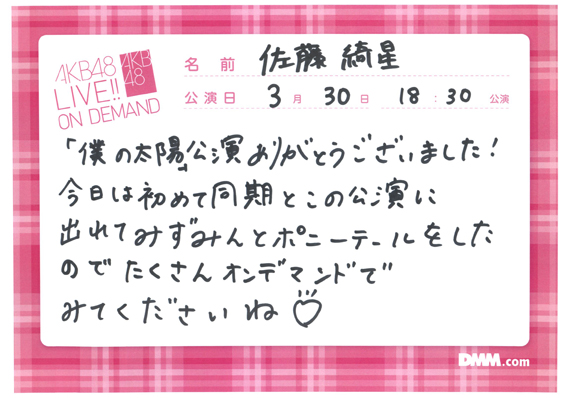 AKB48
LIVE!!
ON DEMAND
AKB
48
名 前 佐藤 綺星
公演日 3月 30日 18:30 公演
「僕の太陽」公演ありがとうございました!
今日は初めて同期とこの公演に
出れてみずみんとポニーテールをした
のでたくさんオンデマンドで
みてくださいね
DMM.com